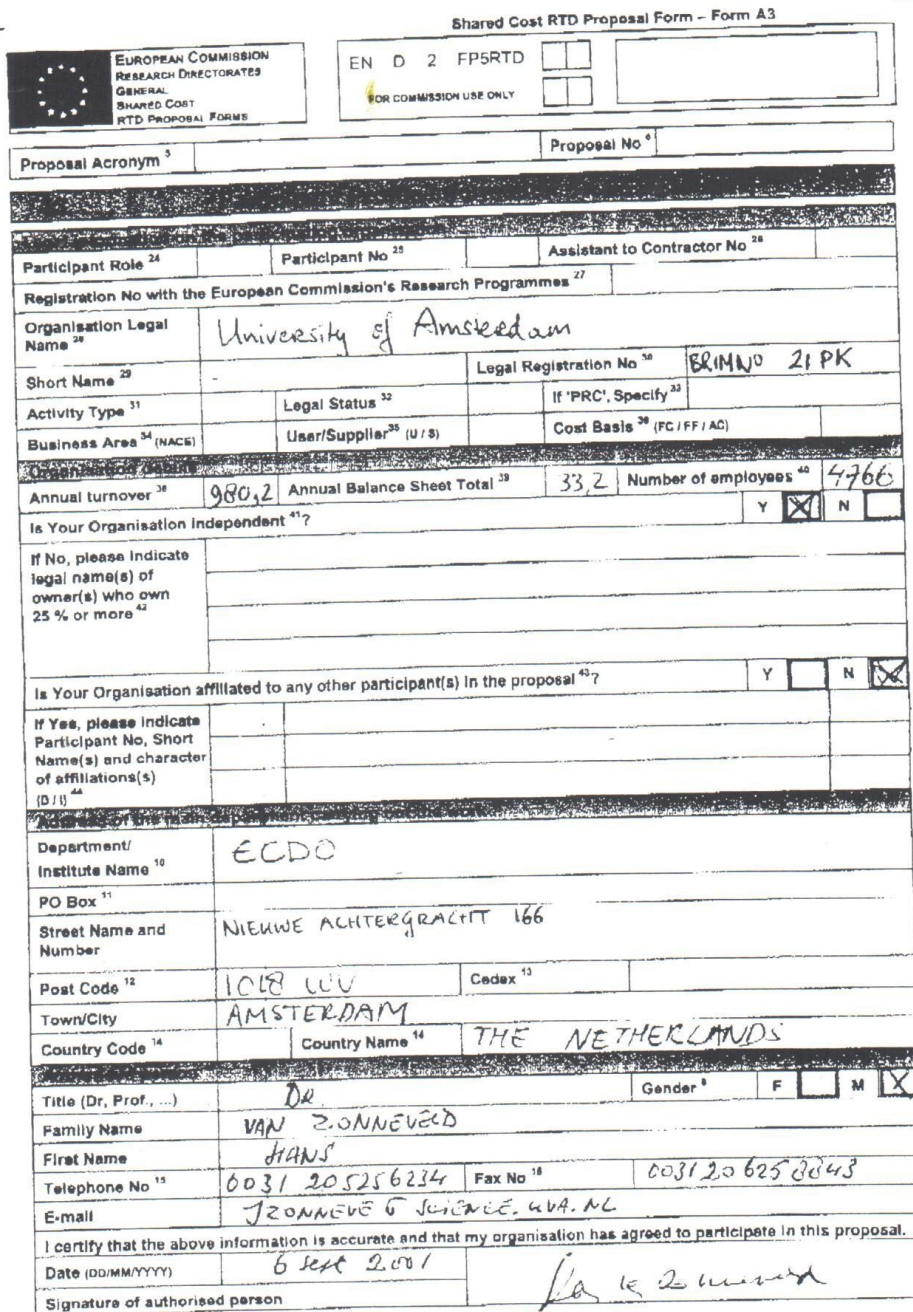 Shared Cost RTD Proposal Form – Form A3
EUROPEAN COMMISSION
RESEARCH DIRECTORATES
GENERAL
SHARED COST
RTD PROPOSAL FORMS
EN D 2 FP5RTD
FOR COMMISSION USE ONLY
Proposal Acronym 5 Proposal No 6
Participant Role 24 Participant No 25 Assistant to Contractor No 26
Registration No with the European Commission's Research Programmes 27
Organisation Legal Name 28 University of Amsterdam
Short Name 29 - Legal Registration No 30 BRIMNO 21 PK
Activity Type 31 Legal Status 32 If 'PRC', Specify 33
Business Area 34 (NACE) User/Supplier 35 (U / S) Cost Basis 36 (FC / FF / AC)
Annual turnover 38 980,2 Annual Balance Sheet Total 39 33,2 Number of employees 40 4766
Is Your Organisation independent 41? Y X N
If No, please indicate
legal name(s) of
owner(s) who own
25 % or more 42
Is Your Organisation affiliated to any other participant(s) in the proposal 43? Y N X
If Yes, please indicate
Participant No, Short
Name(s) and character
of affiliations(s)
(D / I) 44
Address of the main department carrying out the work
Department/
Institute Name 10 ECDO
PO Box 11
Street Name and
Number NIEUWE ACHTERGRACHT 166
Post Code 12 1018 WV Cedex 13
Town/City AMSTERDAM
Country Code 14 Country Name 14 THE NETHERLANDS
Title (Dr, Prof., ...) DR. Gender 8 F M X
Family Name VAN ZONNEVELD
First Name HANS
Telephone No 15 0031 205256234 Fax No 16 0031206258843
E-mail JZONNEVE @ SCIENCE.UVA.NL
I certify that the above information is accurate and that my organisation has agreed to participate in this proposal.
Date (DD/MM/YYYY) 6 sept 2001
Signature of authorised person